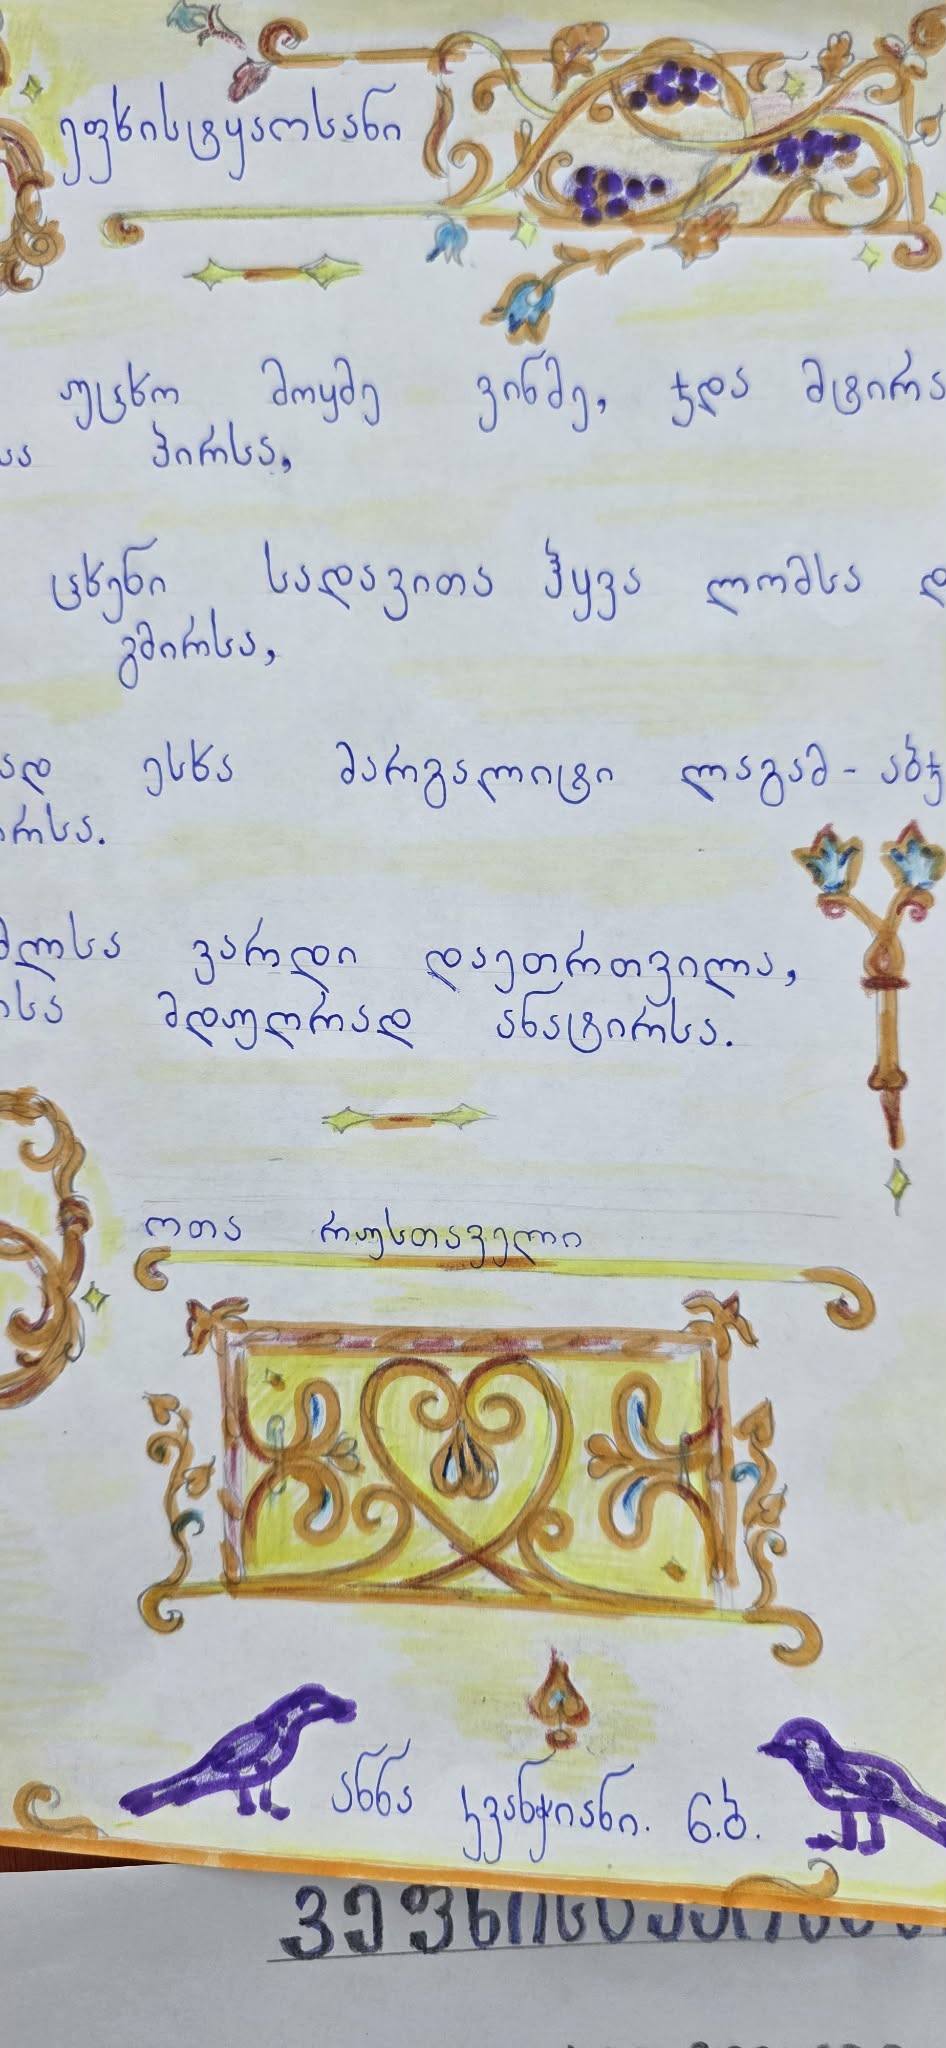 ეფხისტყაოსანი
უცხო მოყმე ვინმე, ჯდა მტირა
სა პირსა,
ცხენი სადავითა ჰყვა ლომსა დ
გმირსა,
ად ესხა მარგალიტი ლაგამ-აბჯ
ირსა.
მლსა ვარდი დაეთრთვილა,
ისა მდუღრად ანატირსა.
ოთა რუსთაველი
ანნა კვანჭიანი. 6.ბ.
ვეფხისტყაოსა